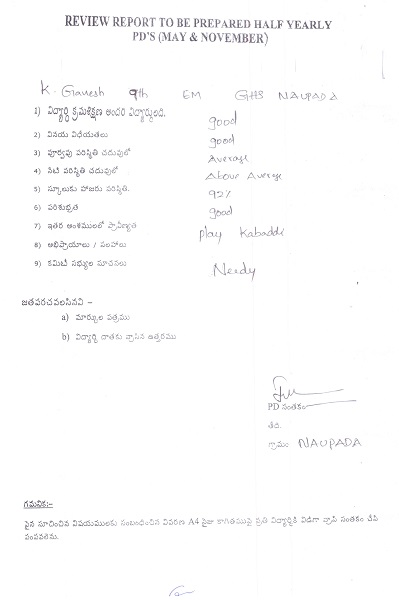 REVIEW REPORT TO BE PREPARED HALF YEARLY
PD'S (MAY & NOVEMBER)
K. Ganesh 9th EM GHS NAUPADA
1) విద్యార్థి క్రమశిక్షణ అందరి విద్యార్థులది. good
2) వినయ విధేయతలు good
3) పూర్వపు పరిస్థితి చదువులో Average
4) నేటి పరిస్థితి చదువులో Above Average
5) స్కూలుకు హాజరు పరిస్థితి. 92%
6) పరిశుభ్రత good
7) ఇతర అంశములలో ప్రావీణ్యత play Kabaddi
8) అభిప్రాయాలు / సలహాలు
9) కమిటి సభ్యుల సూచనలు Needy
జతపరచవలసినవి –
a) మార్కుల పత్రము
b) విద్యార్థి దాతకు వ్రాసిన ఉత్తరము
PD సంతకం
తేది.
గ్రామం NAUPADA
గమనిక:-
పైన సూచించిన విషయములకు సంబంధించిన వివరణ A4 సైజు కాగితముపై ప్రతి విద్యార్థికి విడిగా వ్రాసి సంతకం చేసి
పంపవలెను.